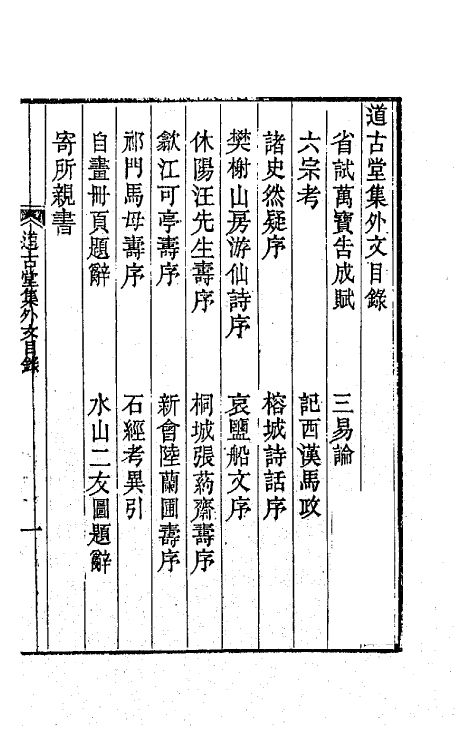 道古堂集外文目錄
省試萬寶告成賦　三易論
六宗考　記西漢馬政
諸史然疑序　榕城詩話序
樊榭山房游仙詩序　哀鹽船文序
休陽汪先生壽序　桐城張葯齋壽序
歙江可亭壽序　新會陸蘭圃壽序
祁門馬母壽序　石經考異引
自畫冊頁題辭　水山二友圖題辭
寄所親書
道古堂集外文目錄　一